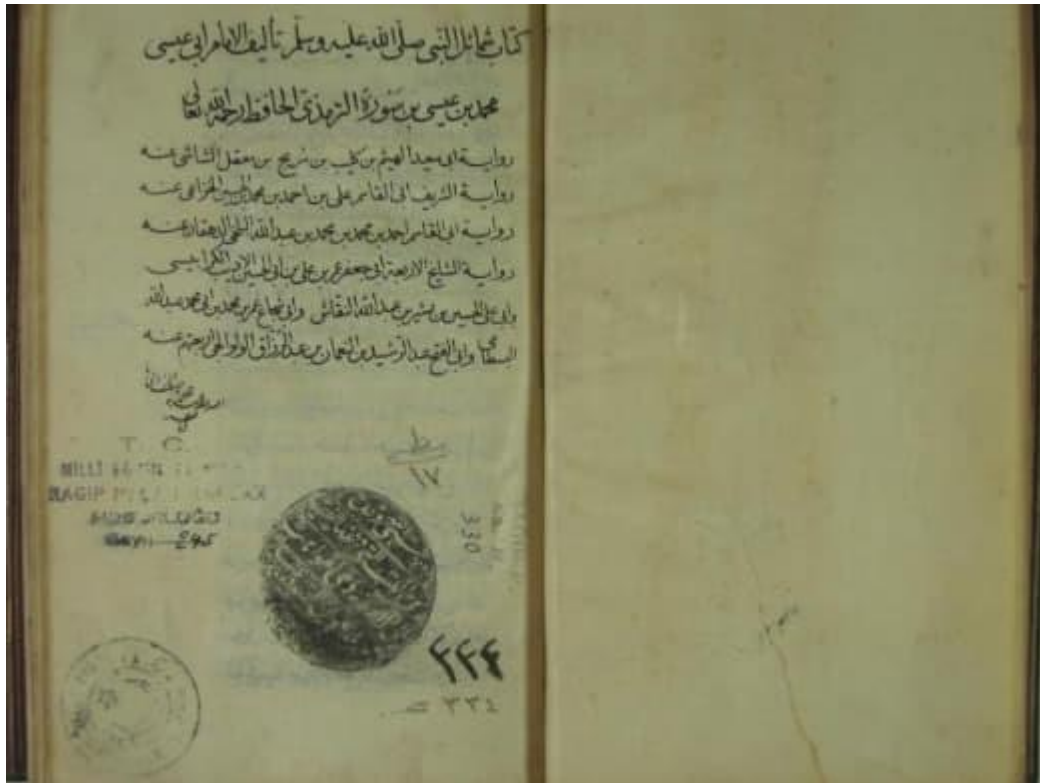 كتاب شمائل النبي صلى الله عليه وسلم تأليف الامام ابي عيسى
محمد بن عيسى بن سورة الترمذي الحافظ رحمه الله تعالى
رواية ابي سعيد الهيثم بن كليب بن شريح بن معقل الشاشي عنه
رواية الشريف ابي القاسم علي بن احمد بن محمد بن الحسين الخزاعي عنه
رواية ابي القاسم احمد بن محمد بن محمد بن عبد الله البلخي الدهقان عنه
رواية المشايخ الاربعة ابي جعفر عمر بن علي بن ابي الحسين الاديب الكرابيسي
وابي علي الحسين بن بشير بن عبد الله النقاش وابي شجاع عمر بن محمد بن ابي محمد عبد الله
البسطامي وابي الفتح عبد الرشيد بن النعمان بن عبد الرزاق الولوالجي اربعتهم عنه
T. C.
١٧
MİLLİ
RAGIP
245
330
٣٣٤
٣٣٤